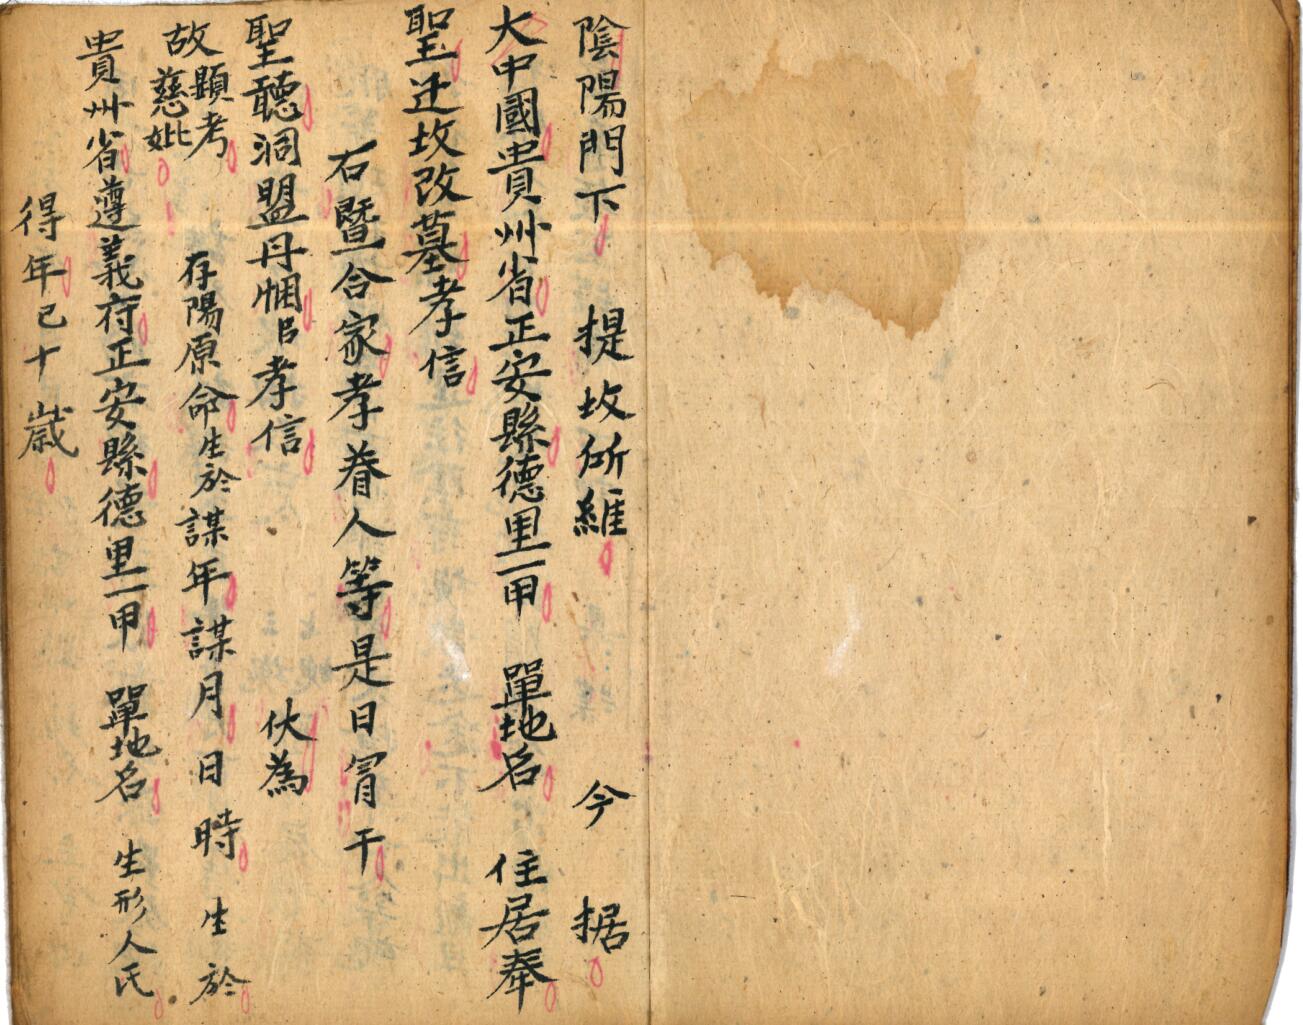 陰陽門下 提坟所維 今 据
大中國貴州省正安縣德里一甲 單地名 住居奉
聖迁坟改墓孝信
右暨合家孝眷人等是日冐干
聖聽洞盟丹悃㠯孝信 伏為
故顯考
慈妣
存陽原命生於謀年謀月日時生於
貴州省遵義府正安縣德里一甲 單地名 生形人民
得年已十歲